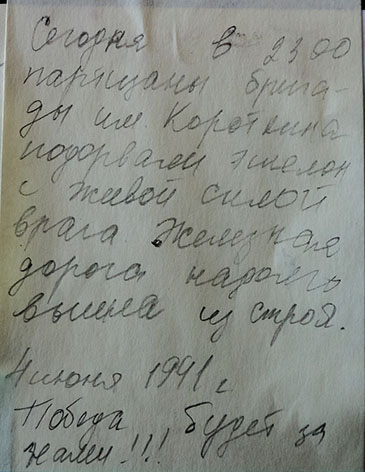 Сегодня в 23 00
партизаны брига-
ды им. Короткина
подорвали эшелон
с живой силой
врага Железная
дорога надолго
вышла из строя.
4 июня 1941 г
Победа будет за
нами!!!